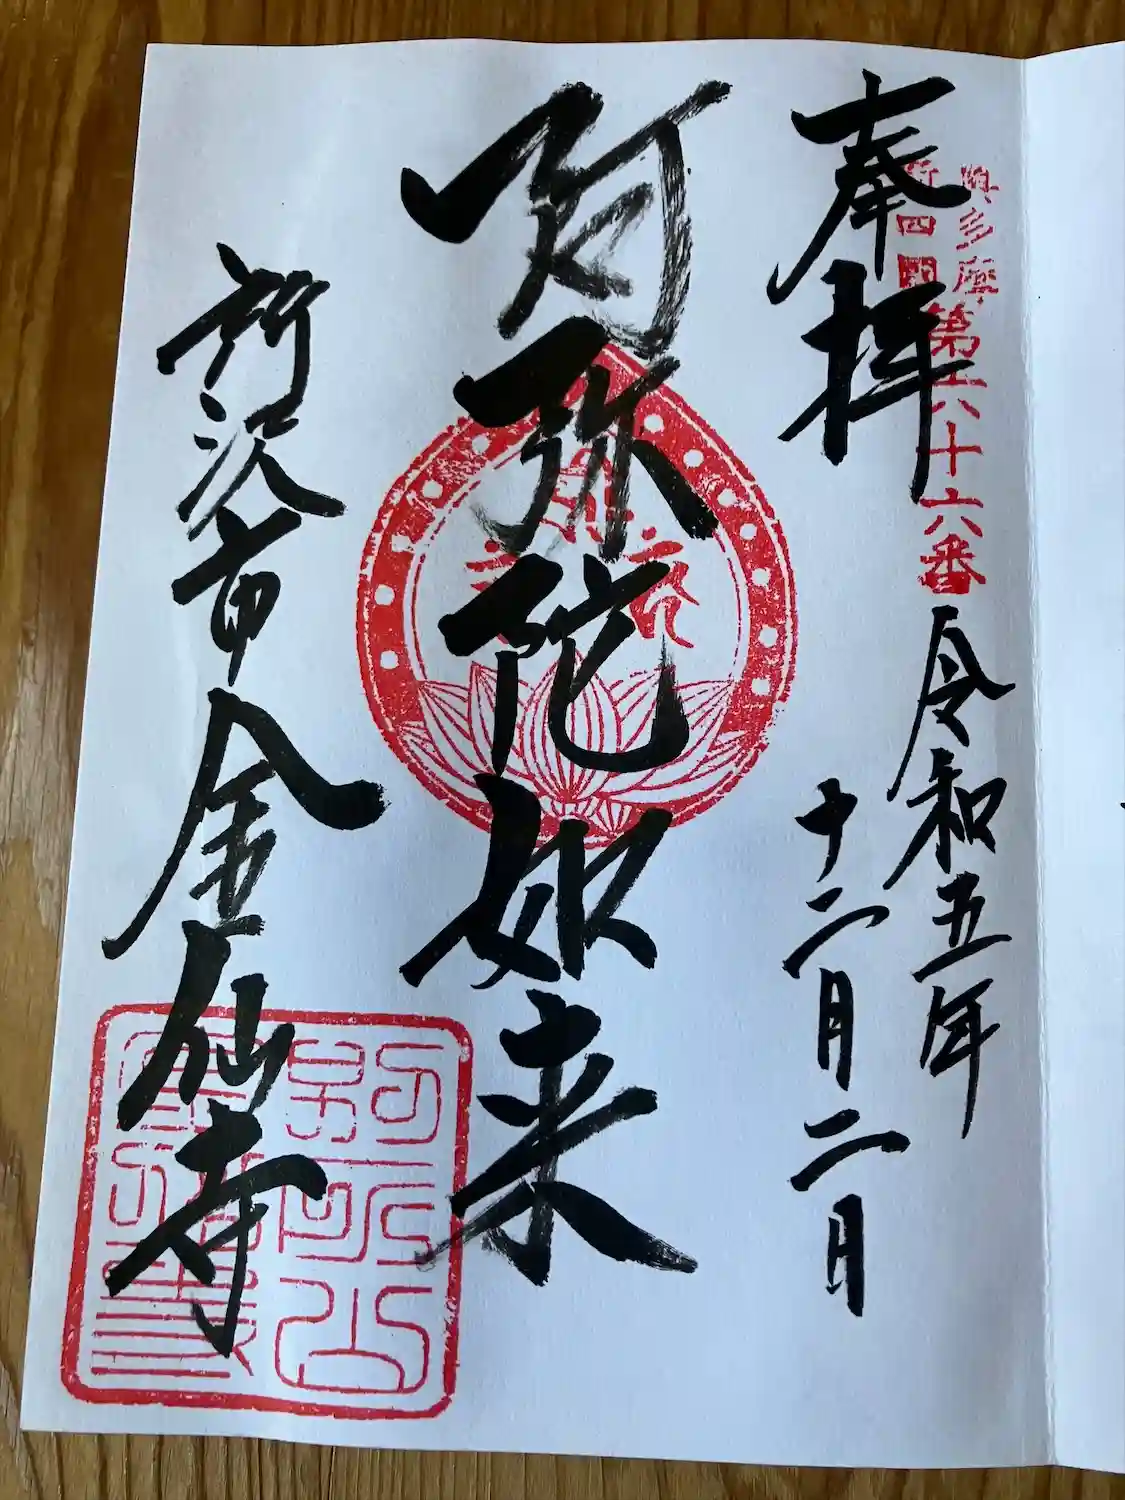 奥多摩
新四国
第六十六番
奉拝
令和五年
十二月二月
阿弥陀如来
所沢市金仙寺
別所山